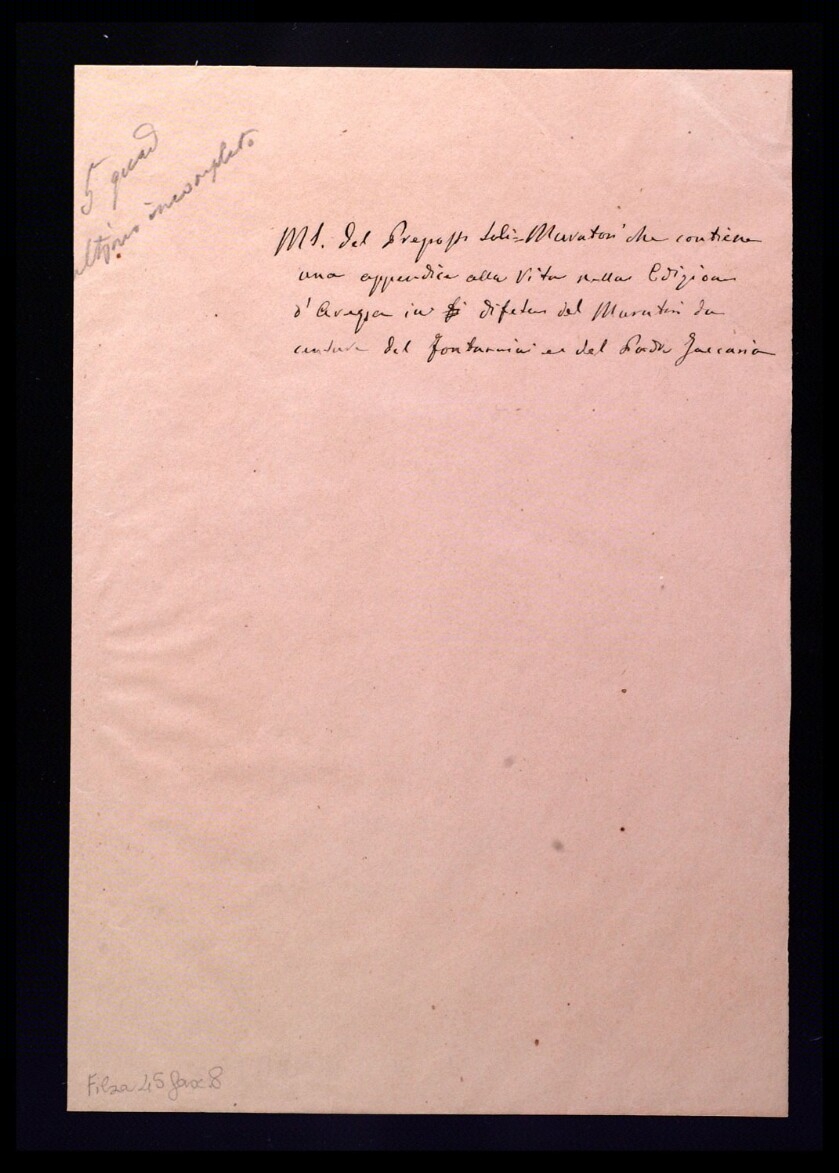 5 quad
ultimo incompleto
MS. del Preposto Soli=Muratori che contiene
una appendice alla Vita nella Edizione
d'Arezzo in difesa del Muratori da
censure del Fontanini e del Padre Zaccaria
Filza 45 fasc 8